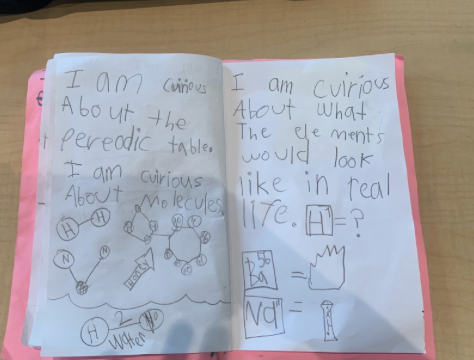 I am cuirious
About the
pereodic table.
I am cuirious
About Molecules.
H H
N
H 2
Water
I am cuirious
About what
The elements
would look
like in real
life. H = ?
56
Ba =
Na =